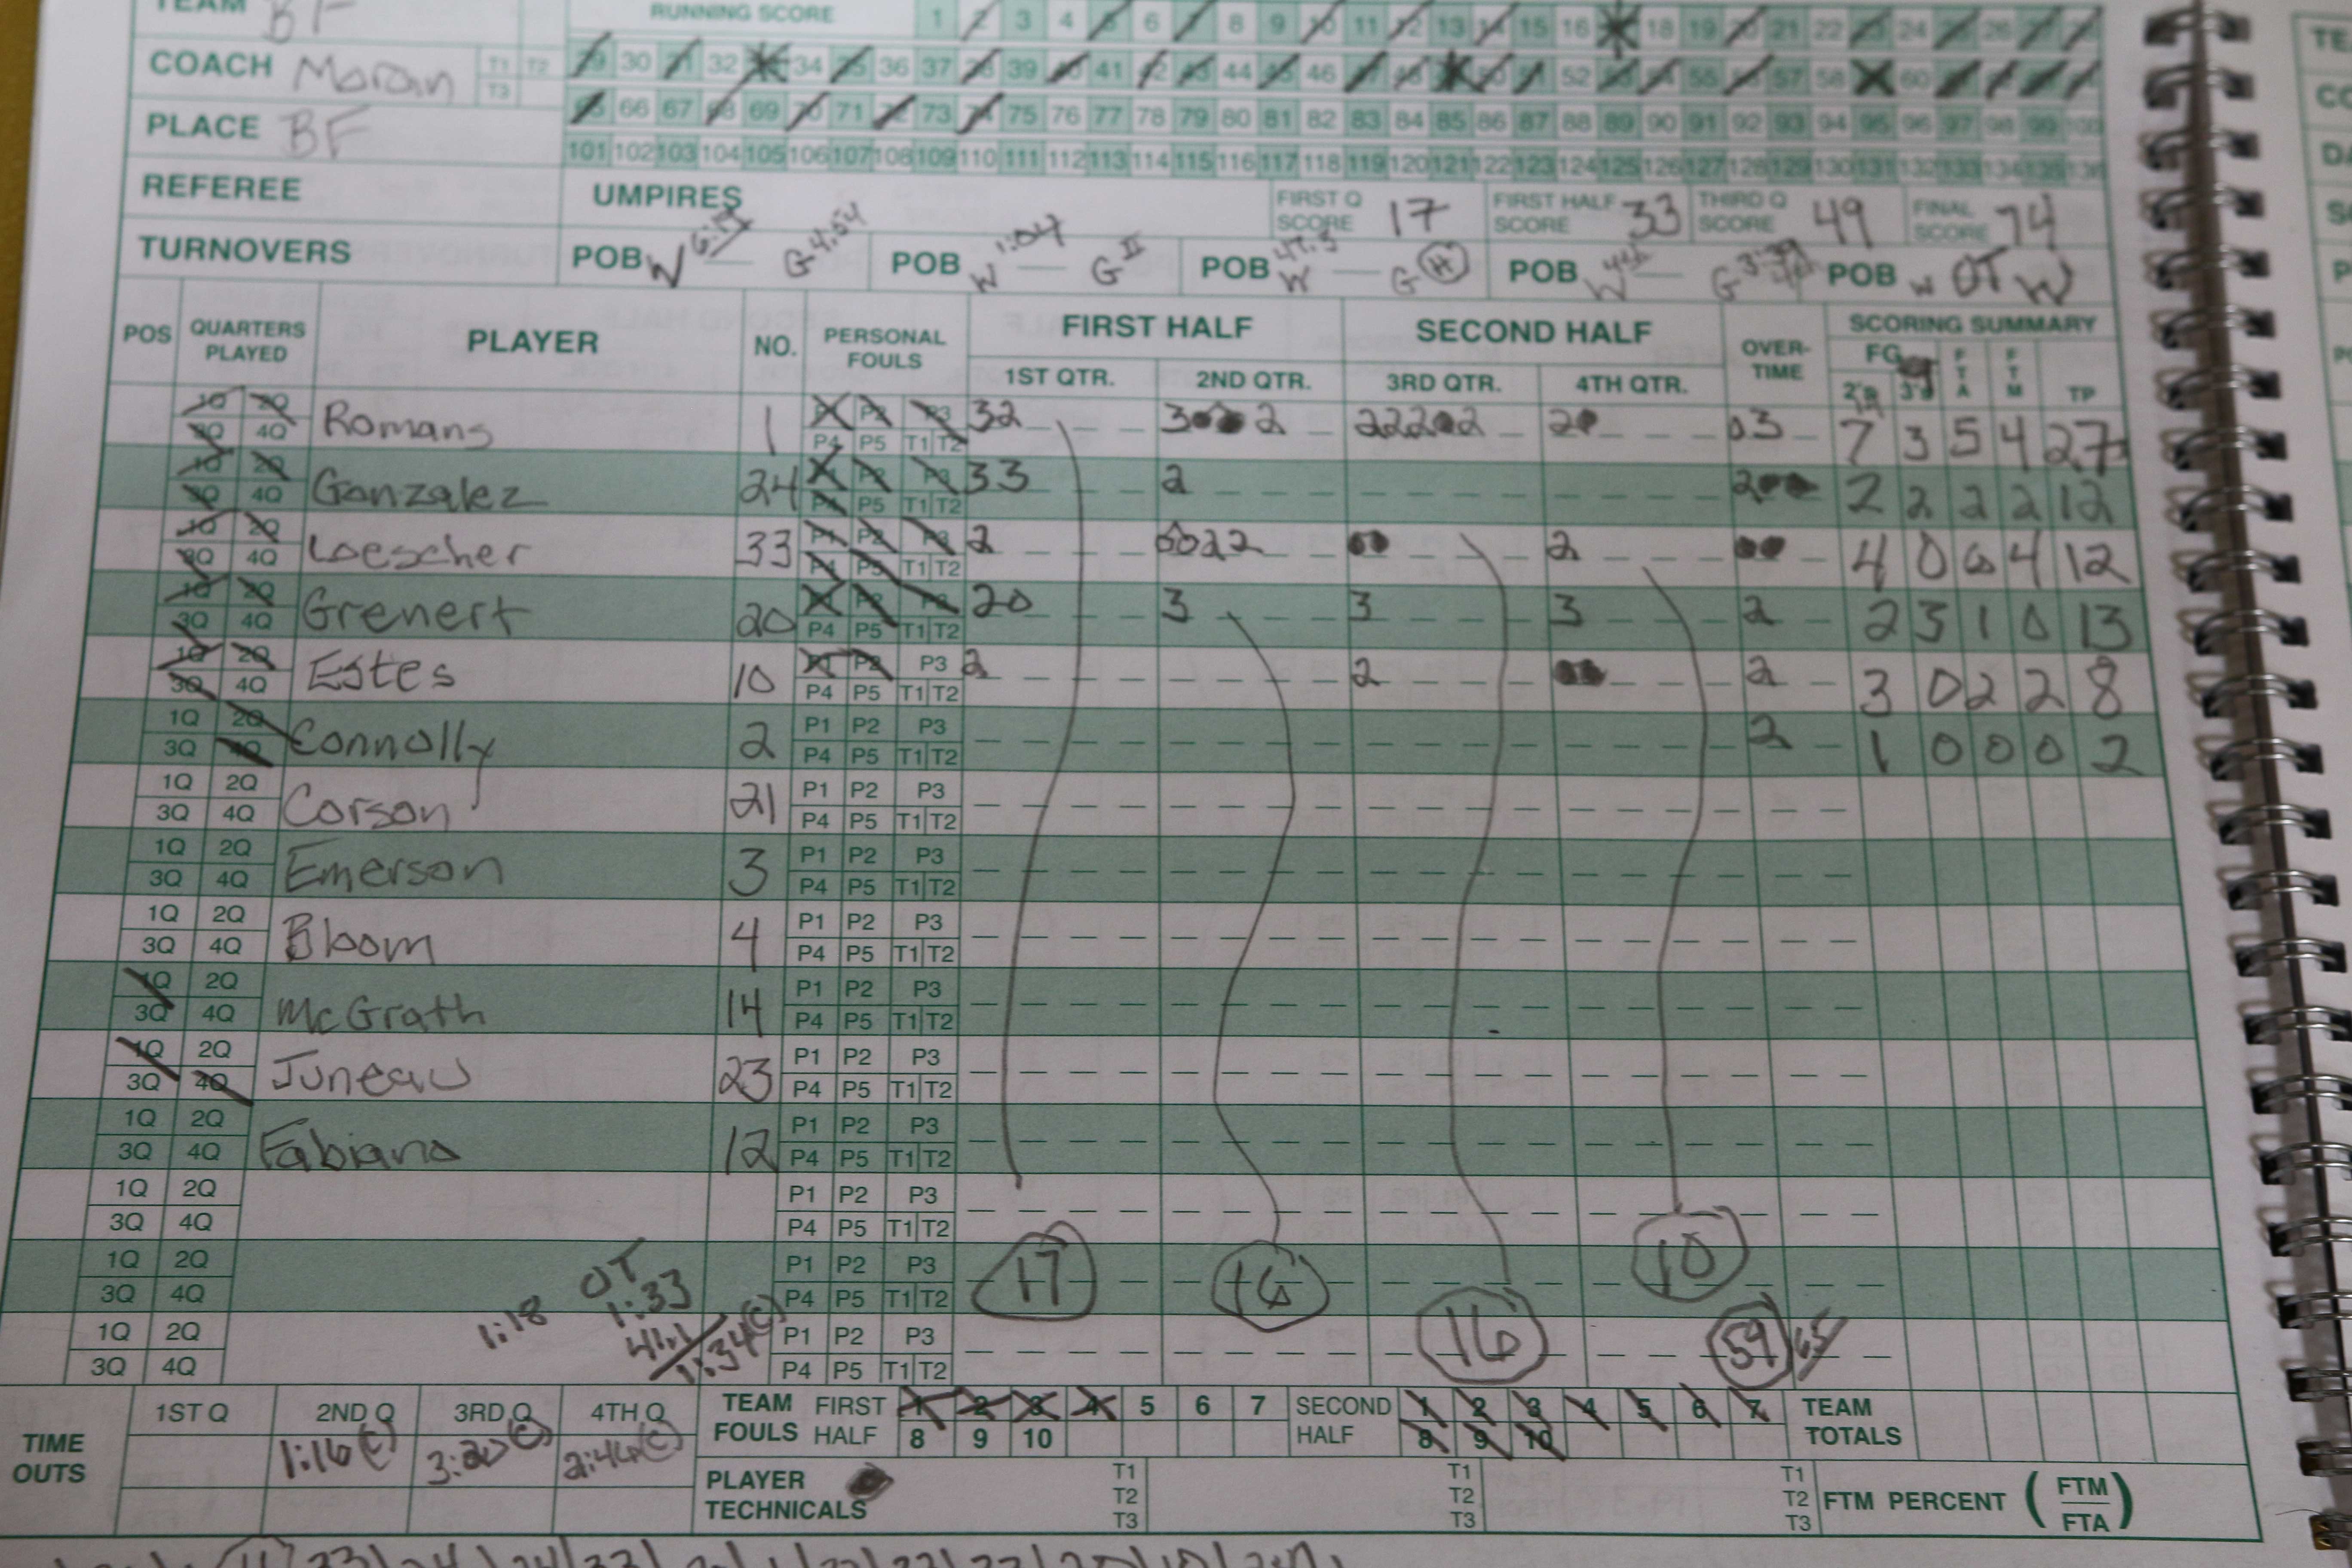 TEAM BF RUNNING SCORE 1 2 3 4 5 6 7 8 9 10 11 12 13 14 15 16 18 19 20 21 22 23 24 25 26 27 28
COACH Moran T1 T2 T3 29 30 31 32 34 35 36 37 38 39 40 41 42 43 44 45 46 47 48 49 50 51 52 53 54 55 56 57 58 60
PLACE BF 65 66 67 68 69 70 71 72 73 74 75 76 77 78 79 80 81 82 83 84 85 86 87 88 89 90 91 92 93 94 95 96 97 98 99 100
101 102 103 104 105 106 107 108 109 110 111 112 113 114 115 116 117 118 119 120 121 122 123 124 125 126 127 128 129 130 131 132 133 134 135 136
REFEREE UMPIRES FIRST Q SCORE 17 FIRST HALF SCORE 33 THIRD Q SCORE 49 FINAL SCORE 74
TURNOVERS POB W G 4:54 POB W 1:04 G II POB W 47.3 G H POB W G POB W OT W
POS QUARTERS PLAYED PLAYER NO. PERSONAL FOULS FIRST HALF SECOND HALF OVER-TIME SCORING SUMMARY
1ST QTR. 2ND QTR. 3RD QTR. 4TH QTR. FG 2's 3's FTA FTM TP
1Q 2Q 3Q 4Q Romans 1 P1 P2 P3 P4 P5 T1 T2 32 3 2 222 2 2 3 7 3 5 4 27
1Q 2Q 3Q 4Q Gonzalez 24 P1 P2 P3 P4 P5 T1 T2 33 2 2 2 2 2 2 12
1Q 2Q 3Q 4Q Loescher 33 P1 P2 P3 P4 P5 T1 T2 2 0022 2 4 0 6 4 12
1Q 2Q 3Q 4Q Grenert 20 P1 P2 P3 P4 P5 T1 T2 20 3 3 3 2 2 3 1 0 13
1Q 2Q 3Q 4Q Estes 10 P1 P2 P3 P4 P5 T1 T2 2 2 2 3 0 2 2 8
1Q 2Q 3Q 4Q Connolly 2 P1 P2 P3 P4 P5 T1 T2 2 1 0 0 0 2
1Q 2Q 3Q 4Q Corson 21 P1 P2 P3 P4 P5 T1 T2
1Q 2Q 3Q 4Q Emerson 3 P1 P2 P3 P4 P5 T1 T2
1Q 2Q 3Q 4Q Bloom 4 P1 P2 P3 P4 P5 T1 T2
1Q 2Q 3Q 4Q McGrath 14 P1 P2 P3 P4 P5 T1 T2
1Q 2Q 3Q 4Q Juneau 23 P1 P2 P3 P4 P5 T1 T2
1Q 2Q 3Q 4Q Fabiano 12 P1 P2 P3 P4 P5 T1 T2
1Q 2Q 3Q 4Q P1 P2 P3 P4 P5 T1 T2
1Q 2Q 3Q 4Q OT 1:33 P1 P2 P3 P4 P5 T1 T2 17 16 10
1Q 2Q 3Q 4Q 1:18 41.1 1:34 (C) P1 P2 P3 P4 P5 T1 T2 16 59 65
TIME OUTS 1ST Q 2ND Q 3RD Q 4TH Q TEAM FOULS FIRST HALF 1 2 3 4 5 6 7 8 9 10 SECOND HALF 1 2 3 4 5 6 7 8 9 10 TEAM TOTALS
1:16 (C) 3:20 (C) 2:46 (C)
PLAYER TECHNICALS T1 T2 T3 T1 T2 T3 T1 T2 T3 FTM PERCENT (FTM/FTA)